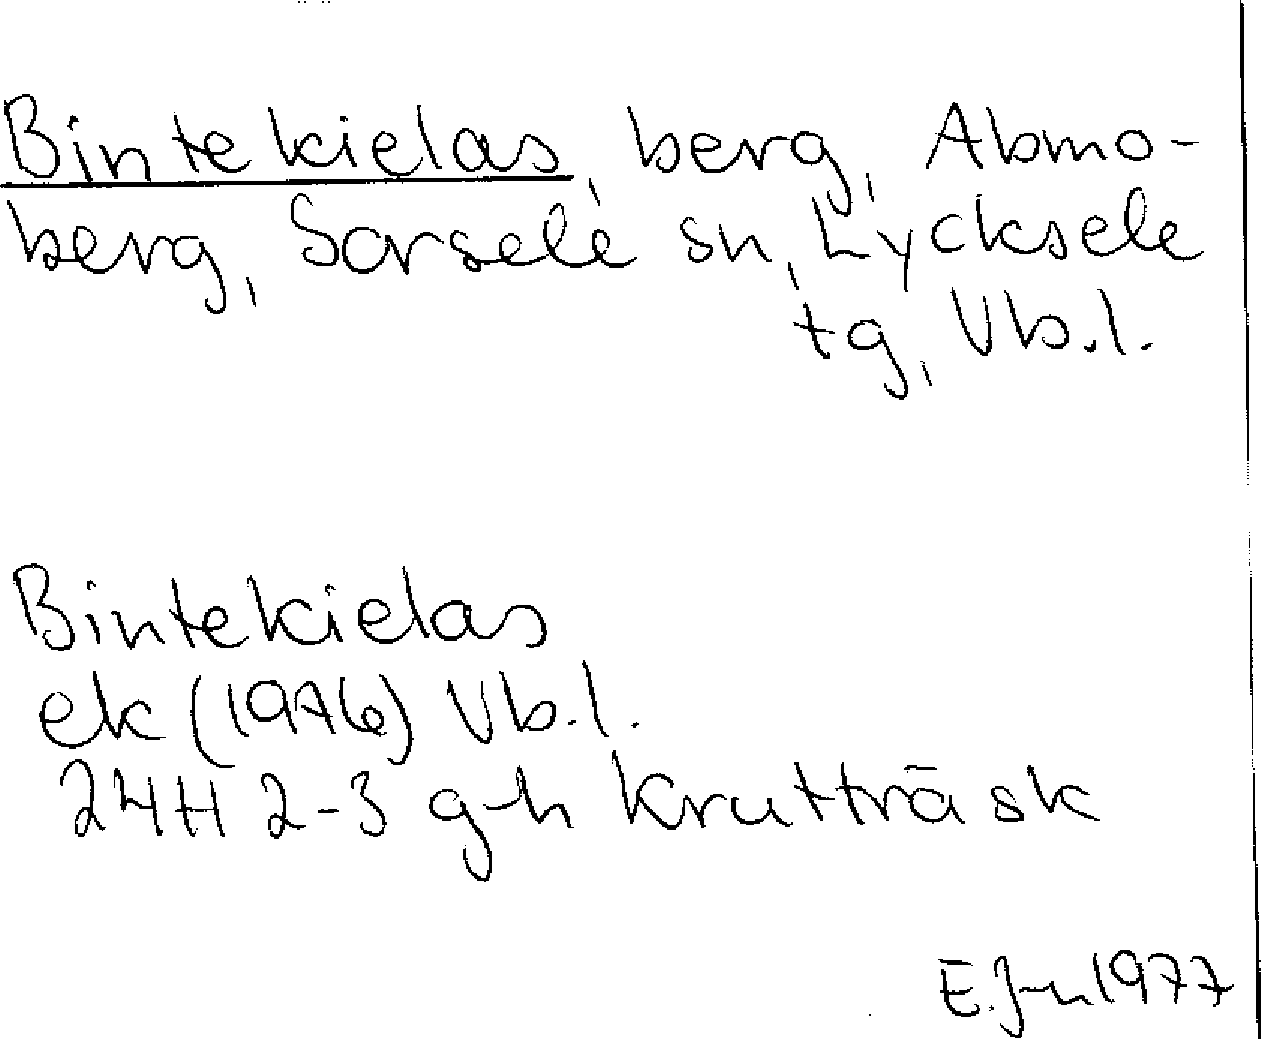 Bintekielas, berg, Abmo-
berg, Sorsele sn, Lycksele
tg, Vb.l.
Bintekielas
ek (1976) Vb.l.
24H 2-3 g-h Kruttträsk
E. J-n 1977